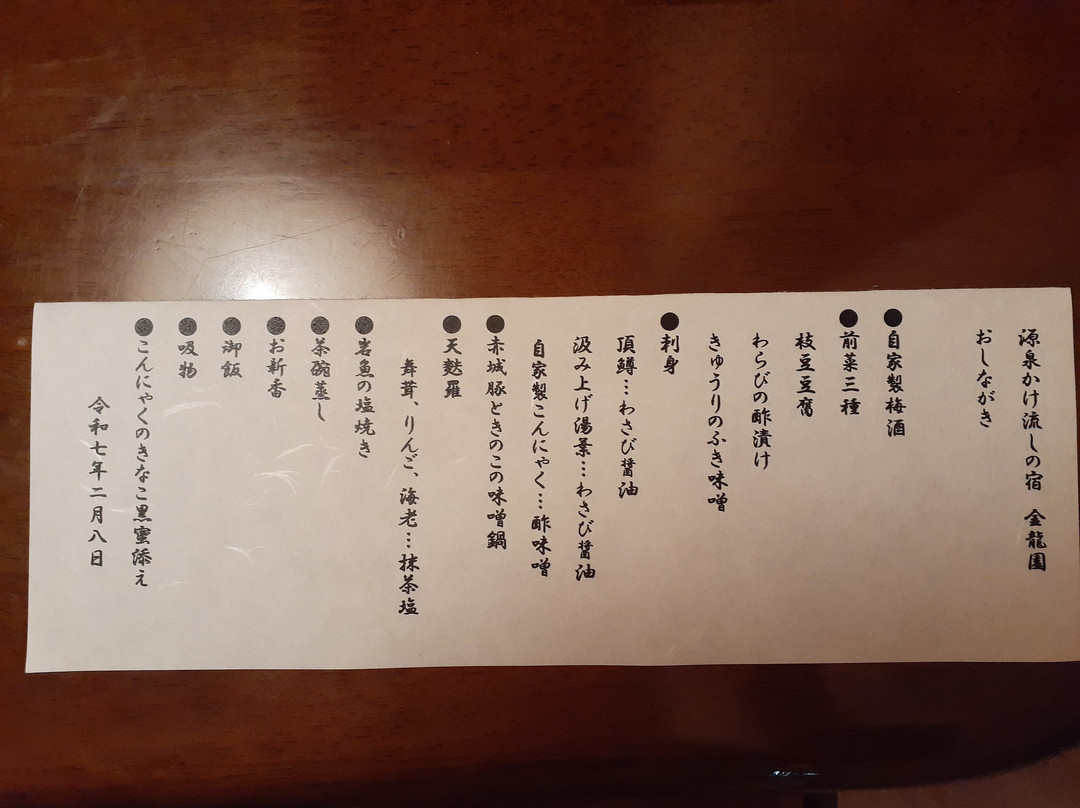 源泉かけ流しの宿 金龍園
おしながき
●自家製梅酒
●前菜三種
枝豆豆腐
わらびの酢漬け
きゅうりのふき味噌
●刺身
頂鱒…わさび醤油
汲み上げ湯葉…わさび醤油
自家製こんにゃく…酢味噌
●赤城豚ときのこの味噌鍋
●天麩羅
舞茸、りんご、海老…抹茶塩
●岩魚の塩焼き
●茶碗蒸し
●お新香
●御飯
●吸物
●こんにゃくのきなこ黒蜜添え
令和七年二月八日